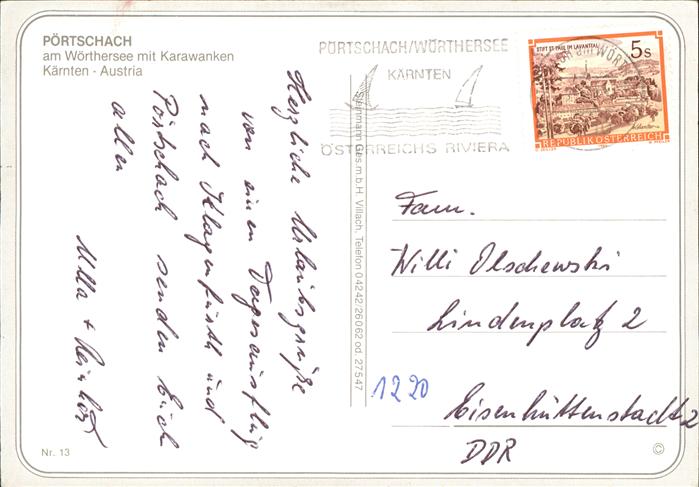 PÖRTSCHACH
am Wörthersee mit Karawanken
Kärnten · Austria
PÖRTSCHACH/WÖRTHERSEE
KÄRNTEN
ÖSTERREICHS RIVIERA
STIFT ST. PAUL IM LAVANTTAL
5 S
REPUBLIK ÖSTERREICH
Herzliche Urlaubsgrüße
von einen Tagesausflug
nach Klagenfurth und
Pörtschach senden Euch
allen
Ulla +
Steinmann Ges.m.b.H. Villach, Telefon 04242/26062 od. 27547
Fam.
Willi Olschewski
Lindenplatz 2
1220
Eisenhüttenstadt 2
DDR
Nr. 13
©